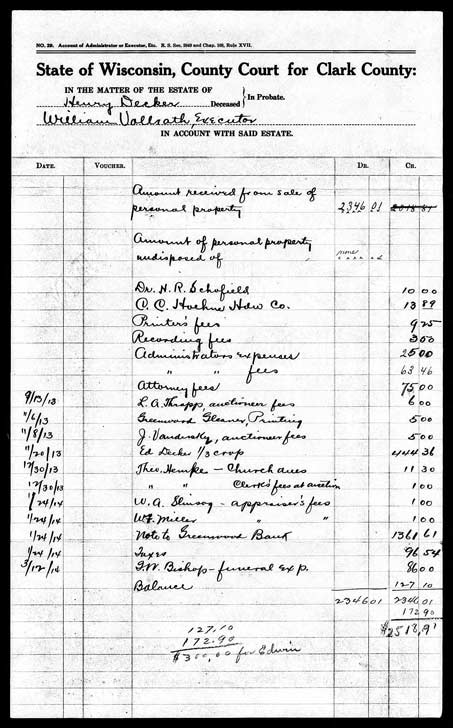 NO. 29. Account of Administrator or Executor, Etc. R. S. Sec.
State of Wisconsin, County Court for Clark County:
IN THE MATTER OF THE ESTATE OF
Henry Decker Deceased } In Probate.
William Vollrath, Executor
IN ACCOUNT WITH SAID ESTATE.
DATE. VOUCHER. DR. CR.
Amount received from sale of
personal property 2346 01
Amount of personal property
undisposed of none
Dr. H. R. Schofield 10 00
C. C. Hoehne Hdw Co. 13 89
Printer's fees 9 25
Recording fees 3 50
Administrators expenses 25 00
" " fees 63 46
Attorney fees 75 00
9/13/13 L. A. Thrapp, auctioneer fees 6 00
11/6/13 Greenwood Gleaner, Printing 5 00
11/8/13 J. auctioneer fees 5 00
11/20/13 Ed Decker 1/3 crop 444 36
12/30/13 Theo. Hemke - Church dues 11 30
12/30/13 " " Clerk's fees at auction 1 00
1/24/14 W. A. - appraiser's fees 1 00
1/24/14 W. F. Miller " " 1 00
1/24/14 Note to Greenwood Bank 1361 61
1/24/14 Taxes 96 54
3/12/14 F. W. Bishop - funeral exp. 86 00
Balance 127 10
2346 01 2346 01
172 90
$2518,91
127,10
172.90
$300,00 for Edwin